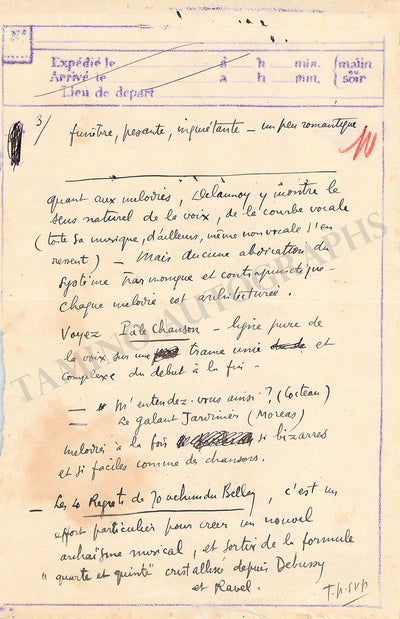 Expédié le à h min. (matin
Arrivé le à h min. ou
Lieu de départ soir
3/ funèbre, pesante, inquiétante – un peu romantique
10
quant aux mélodies, Delannoy y montre le
sens naturel de la voix, de la courbe vocale
(toute sa musique, d'ailleurs, même non vocale s'en
ressent) – Mais aucune abdication du
système harmonique et contrapuntique –
chaque mélodie est architecturée.
Voyez Pâle Chanson – ligne pure de
la voix sur une trame unie et
complexe du début à la fin –
— " M'entendez-vous ainsi"? (Cocteau)
— Le galant Jardinier (Moreas)
mélodies à la fois si bizarres
et si faciles comme des chansons.
— Les 4 Regrets de Joachim du Bellay, c'est un
effort particulier pour créer un nouvel
archaïsme musical, et sortir de la formule
"quarte et quinte" cristallisée depuis Debussy
et Ravel.
T.p. svp
TAMINO AUTOGRAPHS